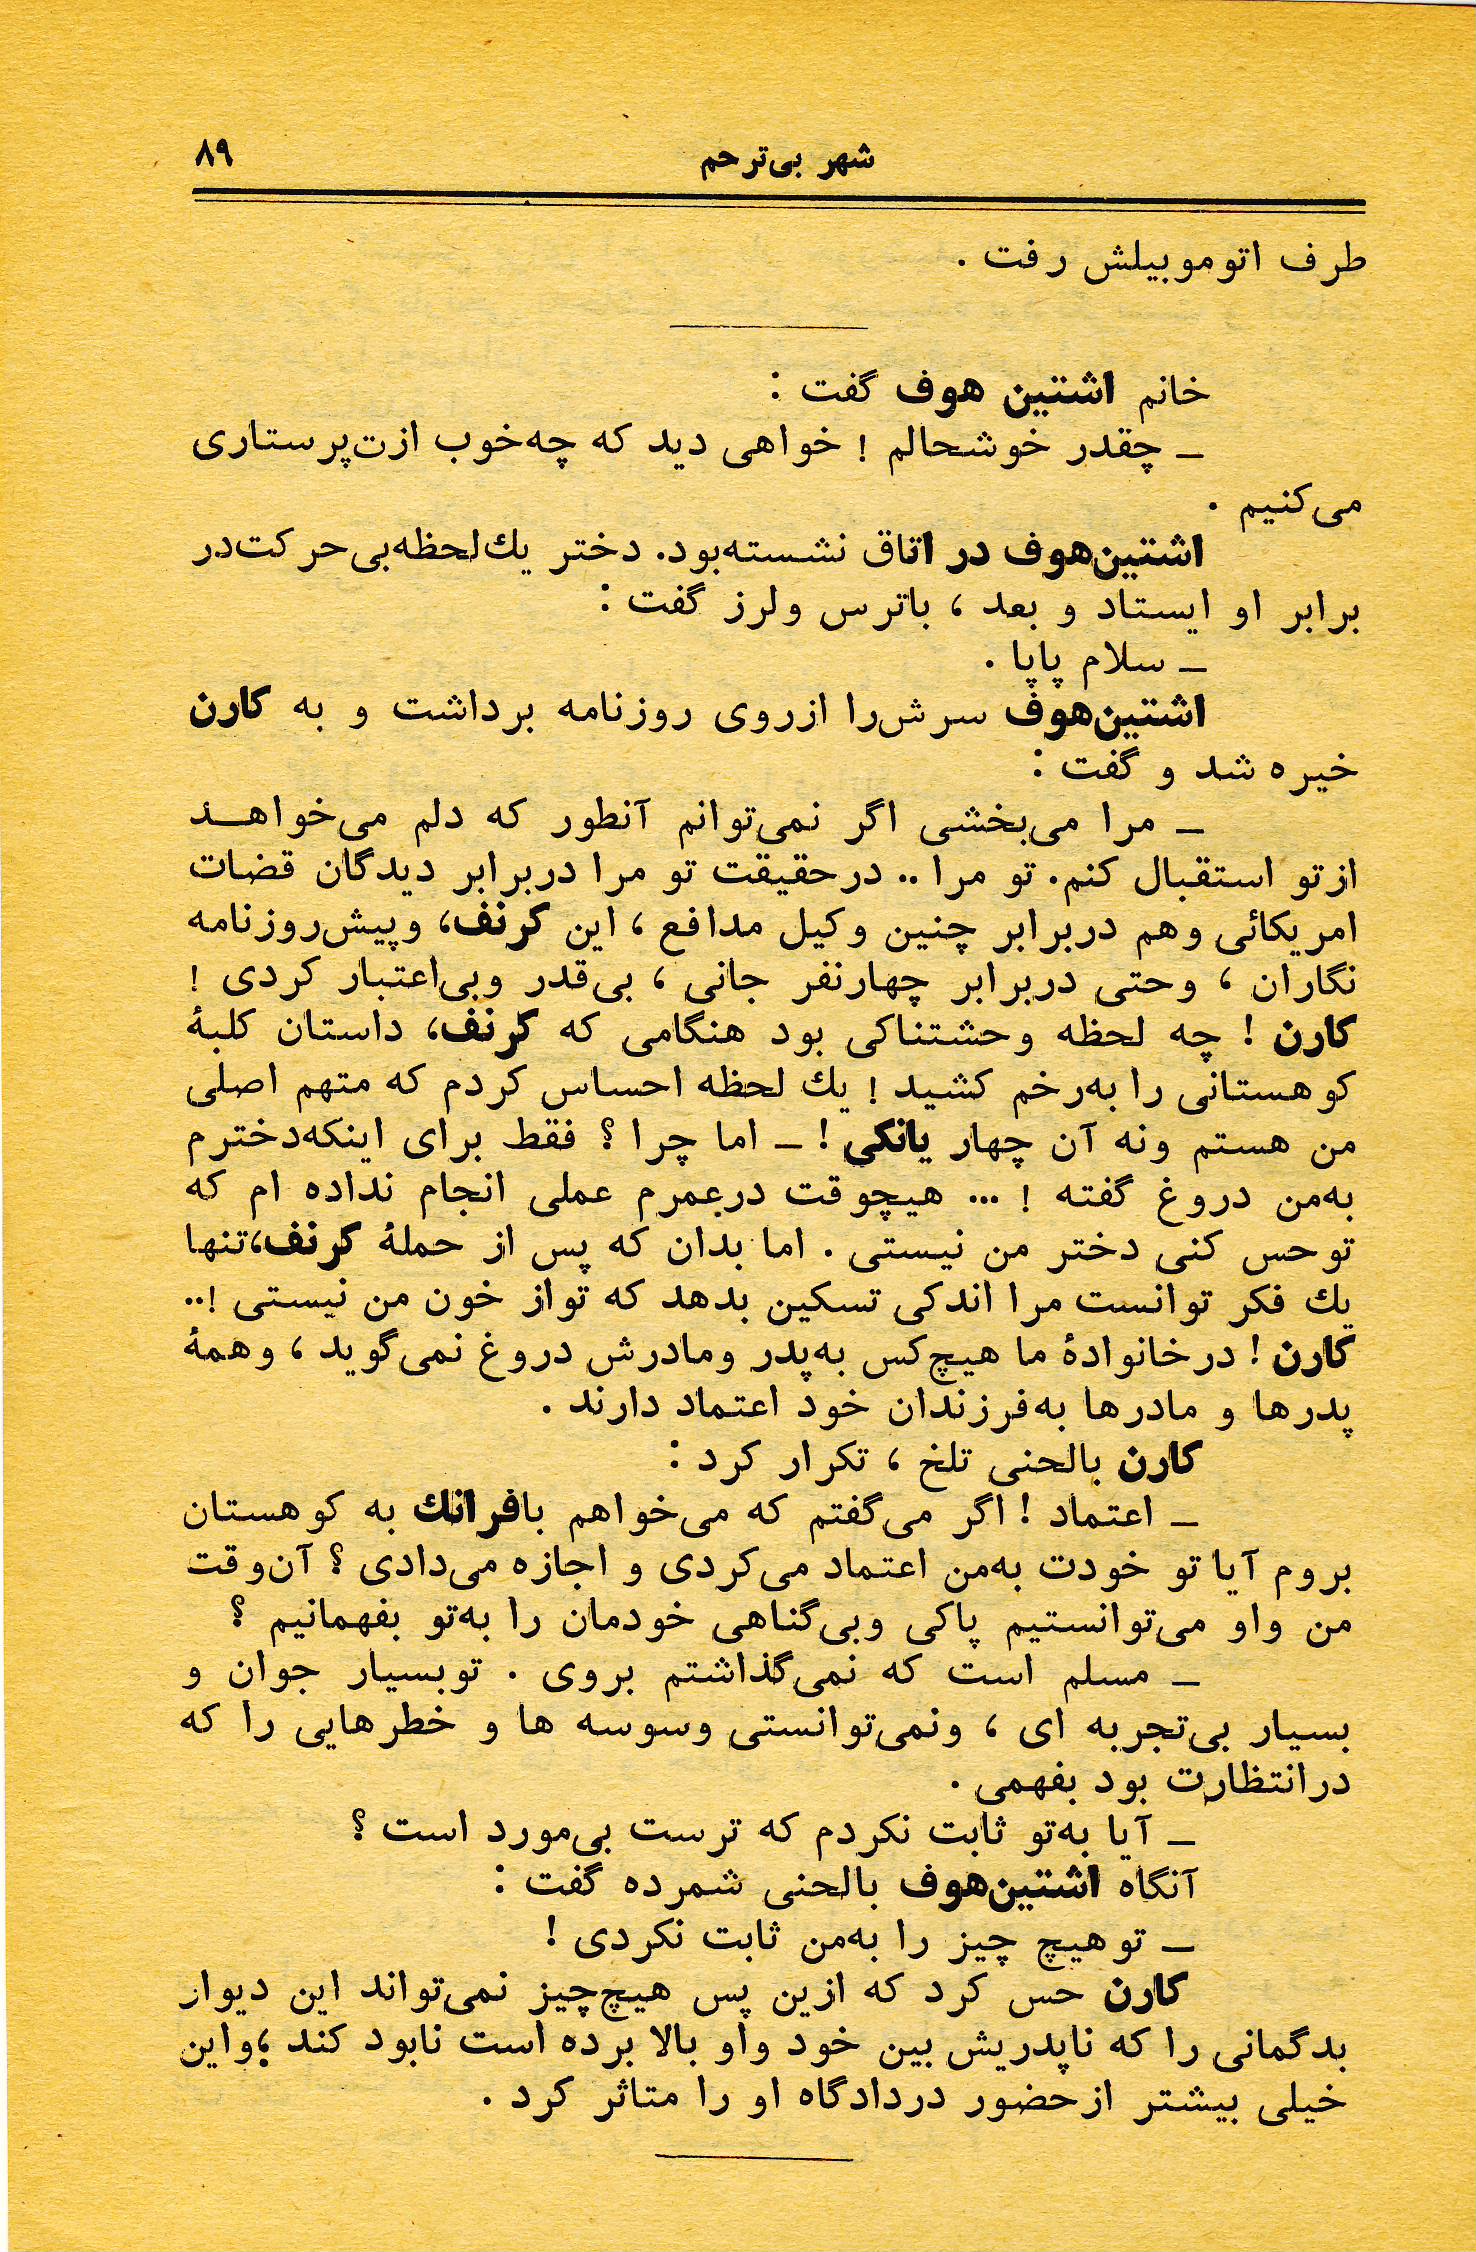 شهر بی‌ترحم ۸۹
طرف اتوموبیلش رفت .
خانم اشتین هوف گفت :
ـ چقدر خوشحالم ! خواهی دید که چه‌خوب ازت‌پرستاری
می‌کنیم .
اشتین‌هوف در اتاق نشسته‌بود. دختر یك‌لحظه‌بی‌حرکت‌در
برابر او ایستاد و بعد ، باترس ولرز گفت :
ـ سلام پاپا .
اشتین‌هوف سرش‌را ازروی روزنامه برداشت و به کارن
خیره شد و گفت :
ـ مرا می‌بخشی اگر نمی‌توانم آنطور که دلم می‌خواهد
ازتو استقبال کنم. تو مرا .. درحقیقت تو مرا دربرابر دیدگان قضات
امریکائی وهم دربرابر چنین وکیل مدافع ، این کرنف، وپیش‌روزنامه
نگاران ، وحتی دربرابر چهارنفر جانی ، بی‌قدر وبی‌اعتبار کردی !
کارن ! چه لحظه وحشتناکی بود هنگامی که کرنف، داستان کلبهٔ
کوهستانی را به‌رخم کشید ! یك لحظه احساس کردم که متهم اصلی
من هستم ونه آن چهار یانکی ! ـ اما چرا ؟ فقط برای اینکه‌دخترم
به‌من دروغ گفته ! ... هیچوقت درعمرم عملی انجام نداده ام که
توحس کنی دختر من نیستی . اما بدان که پس از حملهٔ کرنف،تنها
یك فکر توانست مرا اندکی تسکین بدهد که تواز خون من نیستی !..
کارن ! درخانوادهٔ ما هیچ‌کس به‌پدر ومادرش دروغ نمی‌گوید ، وهمهٔ
پدرها و مادرها به‌فرزندان خود اعتماد دارند .
کارن بالحنی تلخ ، تکرار کرد :
ـ اعتماد ! اگر می‌گفتم که می‌خواهم بافرانك به کوهستان
بروم آیا تو خودت به‌من اعتماد می‌کردی و اجازه می‌دادی ؟ آن‌وقت
من واو می‌توانستیم پاکی وبی‌گناهی خودمان را به‌تو بفهمانیم ؟
ـ مسلم است که نمی‌گذاشتم بروی . توبسیار جوان و
بسیار بی‌تجربه ای ، ونمی‌توانستی وسوسه ها و خطرهایی را که
درانتظارت بود بفهمی .
ـ آیا به‌تو ثابت نکردم که ترست بی‌مورد است ؟
آنگاه اشتین‌هوف بالحنی شمرده گفت :
ـ توهیچ چیز را به‌من ثابت نکردی !
کارن حس کرد که ازین پس هیچ‌چیز نمی‌تواند این دیوار
بدگمانی را که ناپدریش بین خود واو بالا برده است نابود کند ؛واین
خیلی بیشتر ازحضور دردادگاه او را متاثر کرد .